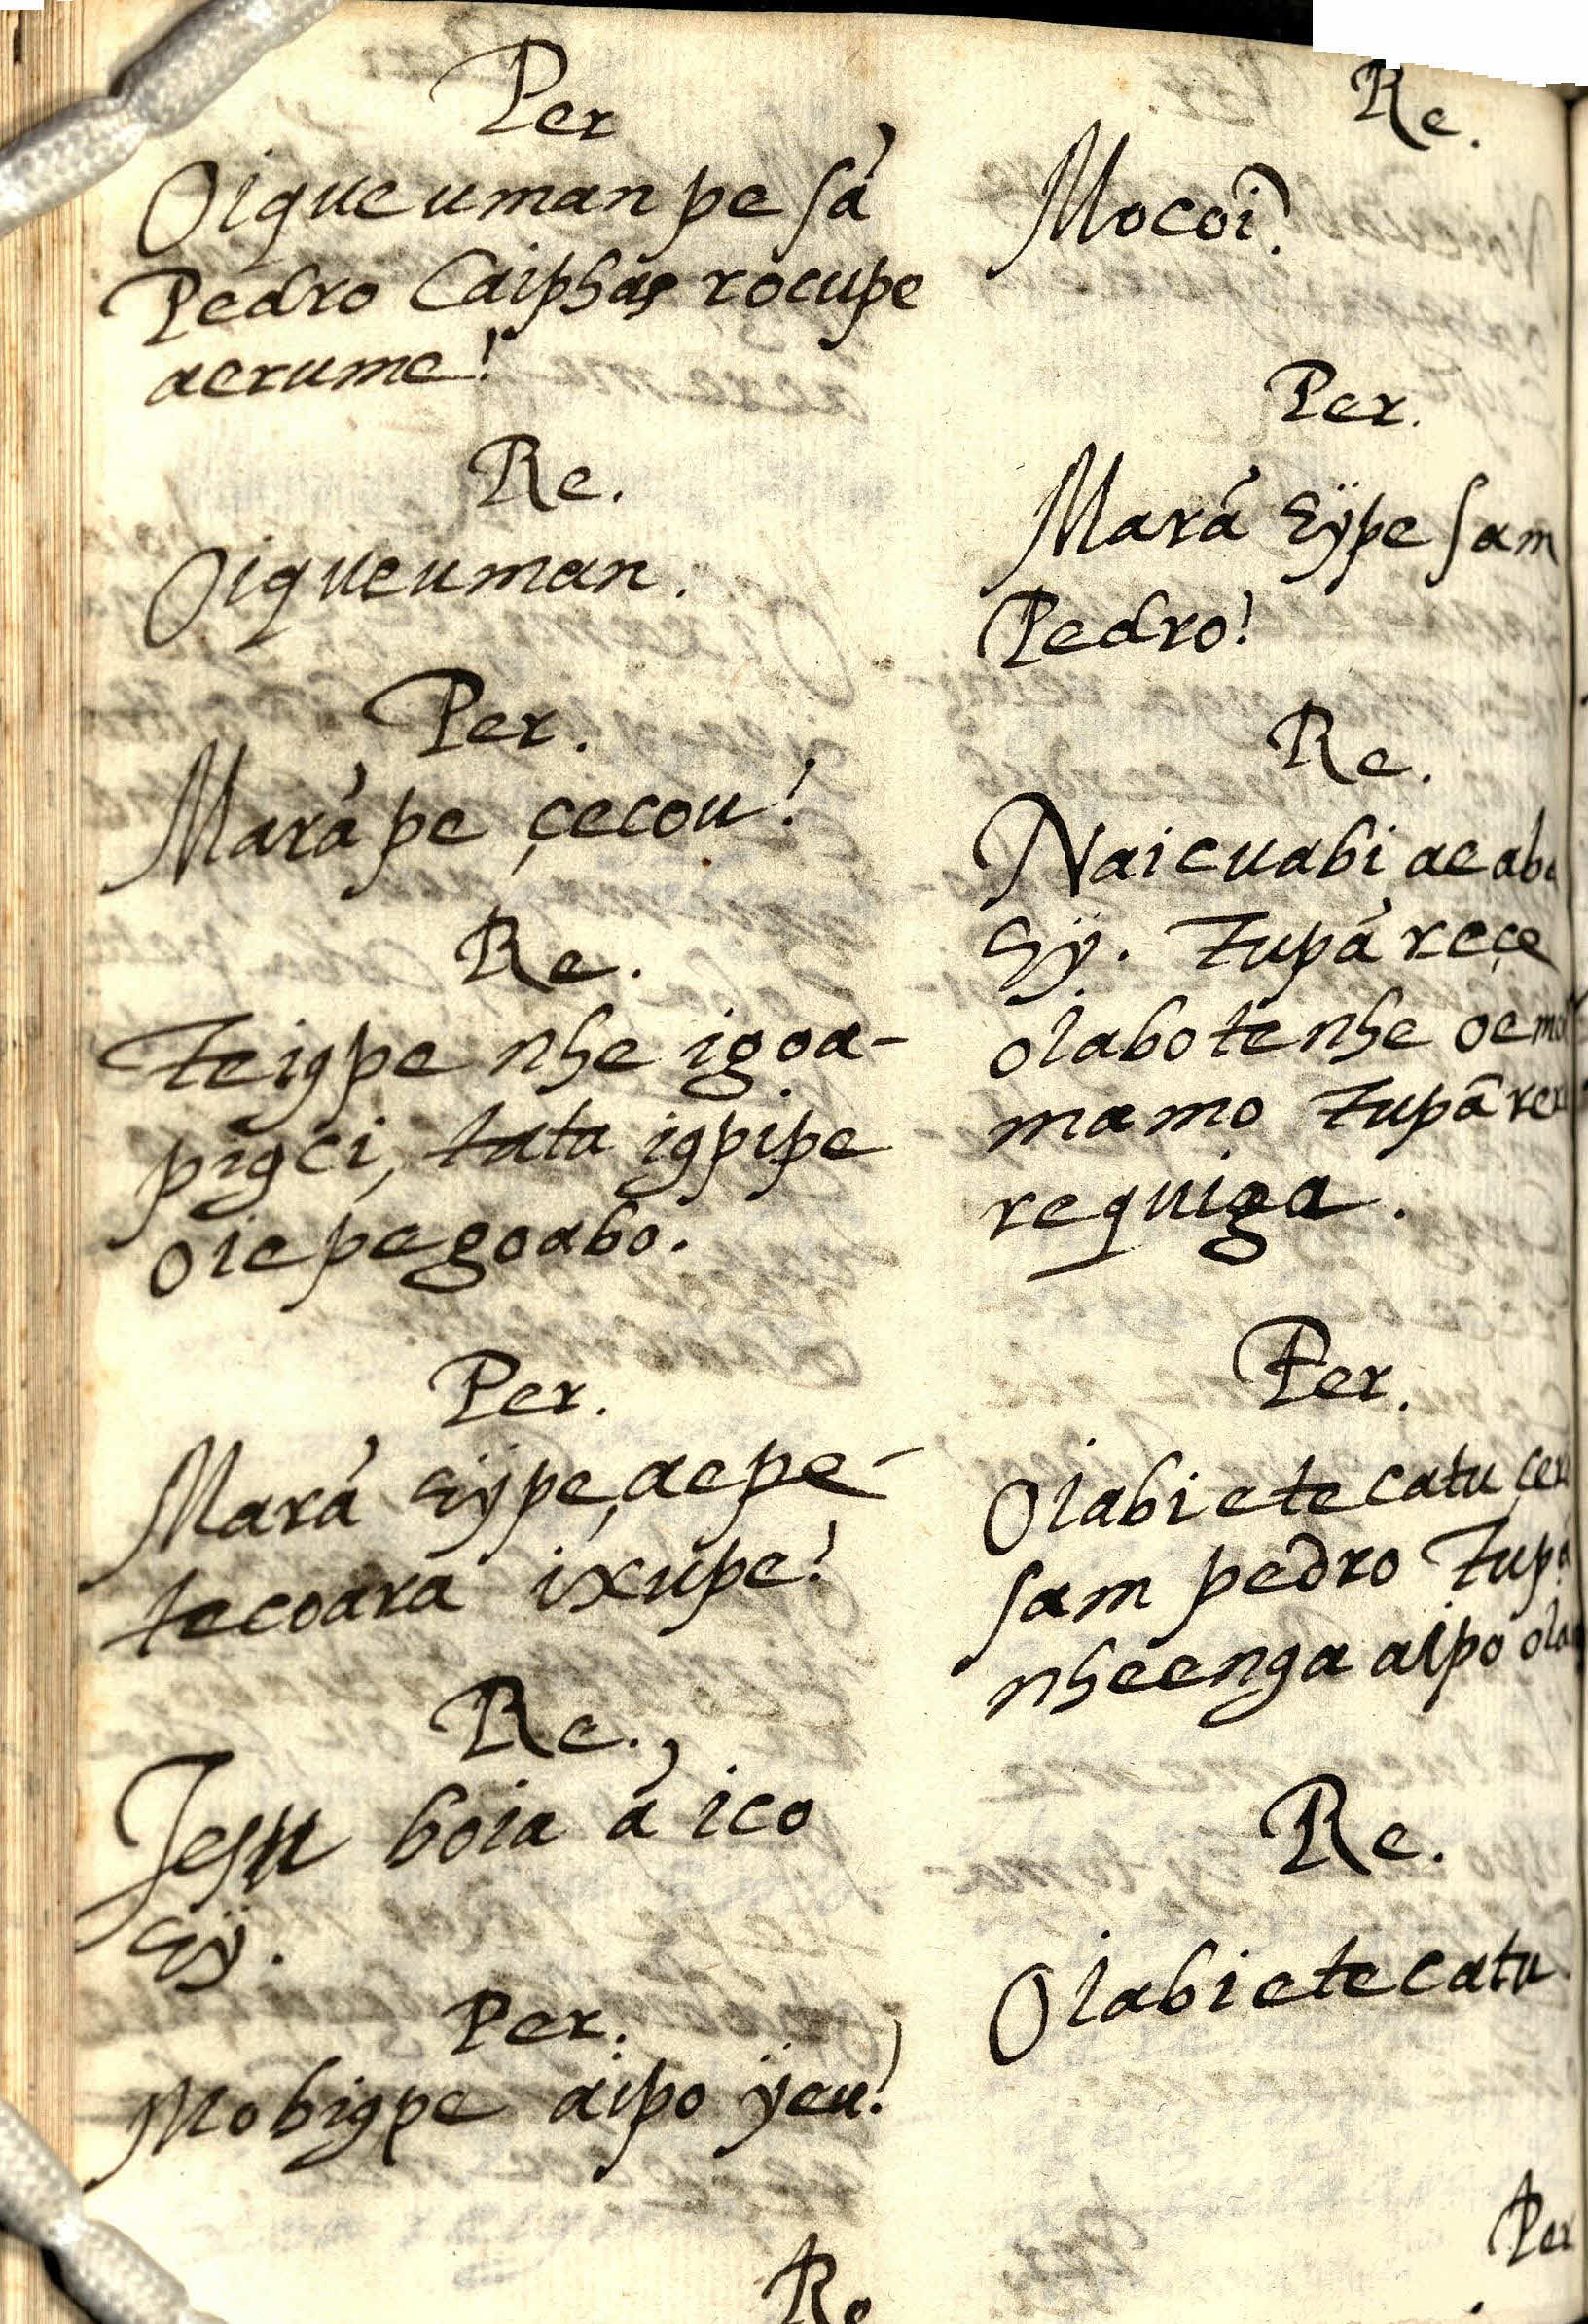 Per
Oiqueuman pe sá
Pedro Caiphas rocupe
aerume!
Re.
Oiqueuman.
Per.
Marápe çecou!
Re.
Teigpe nhe igoa-
pigci, tata igpipe
oiepegoabo.
Per.
Mará eÿpe, aepe-
tecoara ixupe!
Re.
Jesu boia á ico
eÿ.
Per.
Mobigpe aipo ÿeu!
Re
Re.
Mocoi.
Per.
Mará eÿpe sam
Pedro!
Re.
Naicuabi ae aba
eÿ. Tupá reçe
oiabo te nhe oemo
mamo Tupã rer
requiga.
Per.
Oiabi etecatu cer
sam pedro Tupá
nheenga aipo oia
Re.
Oiabi etecatu.
Per